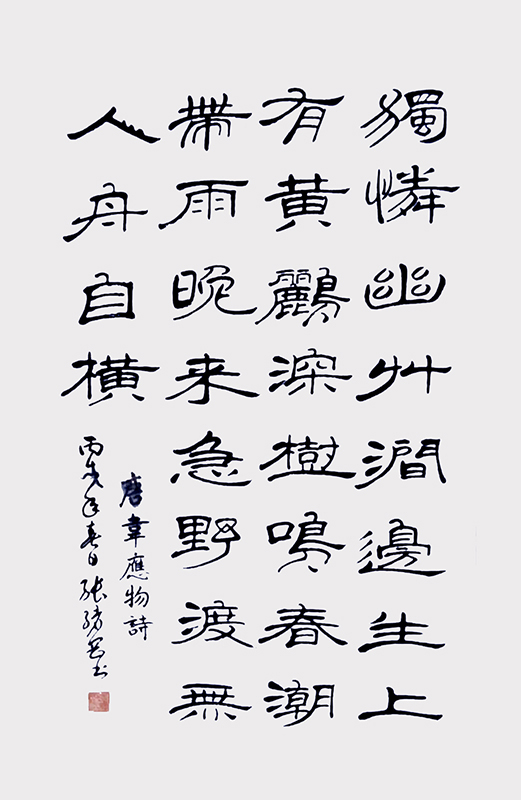 獨憐幽艸澗邊生上
有黃鸝深樹鳴春潮
帶雨晩来急野渡無
人舟自橫
唐韋應物詩
丙戌年春日張